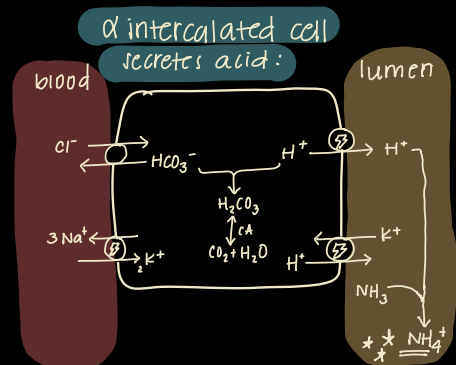 α intercalated cell
secretes acid:
blood
lumen
Cl⁻
HCO₃⁻
H⁺
H⁺
H₂CO₃
CA
CO₂ + H₂O
3 Na⁺
₂K⁺
H⁺
K⁺
NH₃
NH₄⁺